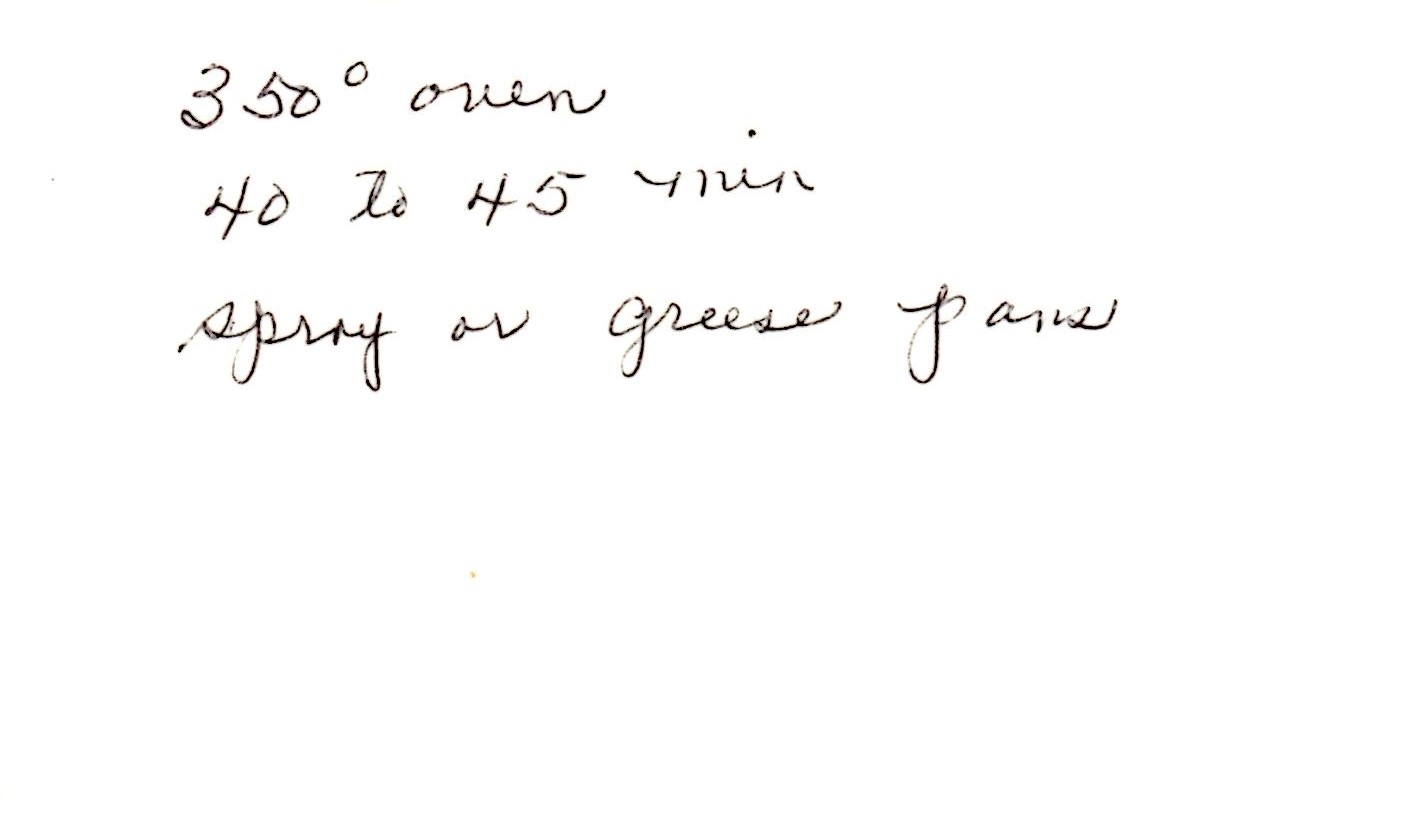 350° oven
40 to 45 min
spray or greese pans